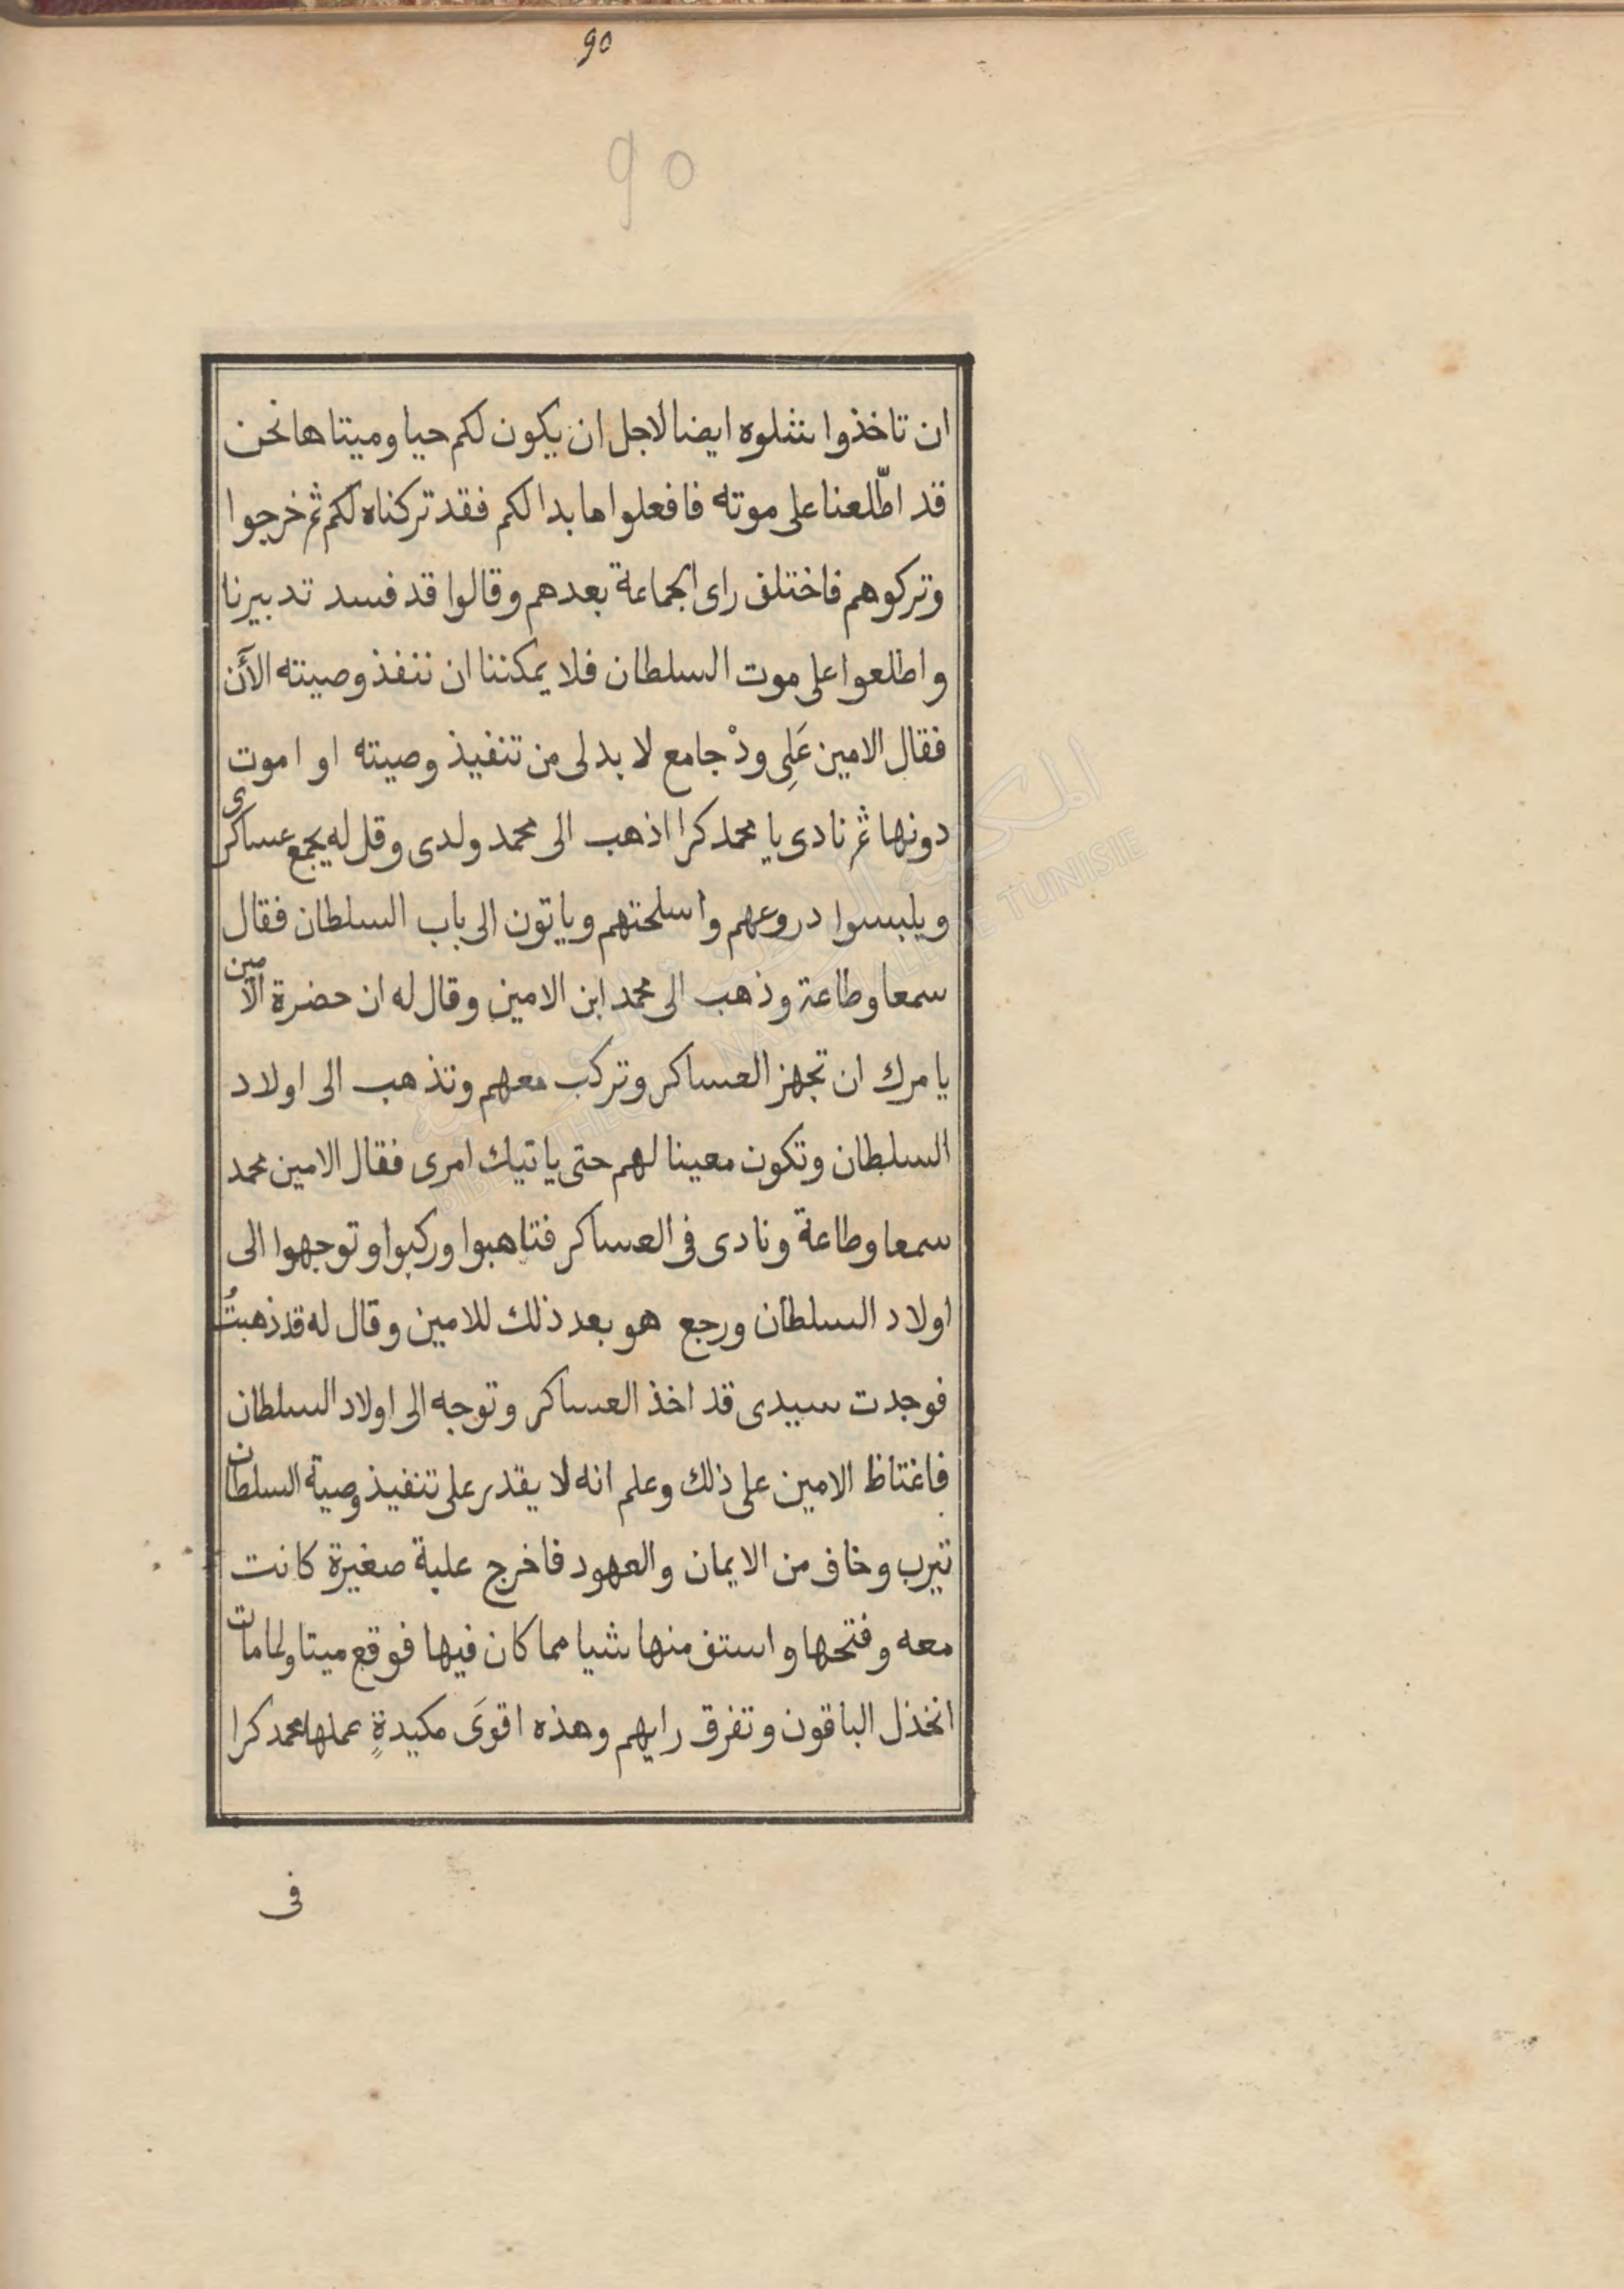 90
90
ان تاخذوا شلوه ايضا لاجل ان يكون لكم حيا وميتا ها نحن
قد اطّلعنا على موته فافعلوا ما بدا لكم فقد تركناه لكم ثم خرجوا
وتركوهم فاختلف راى الجماعة بعدهم وقالوا قد فسد تدبيرنا
واطلعوا على موت السلطان فلا يمكننا ان ننفذ وصيته الآن
فقال الامين عَلِى ودْ جامع لا بد لى من تنفيذ وصيته او اموت
دونها ثم نادى يا محمد كرا اذهب الى محمد ولدى وقل له يجمع عساكرى
ويلبسوا دروعهم واسلحتهم وياتون الى باب السلطان فقال
سمعا وطاعة وذهب الى محمد ابن الامين وقال له ان حضرة الامين
يامرك ان تجهز العساكر وتركب معهم وتذهب الى اولاد
السلطان وتكون معينا لهم حتى ياتيك امرى فقال الامين محمد
سمعا وطاعة ونادى فى العساكر فتاهبوا وركبوا وتوجهوا الى
اولاد السلطان ورجع هو بعد ذلك للامين وقال له قد ذهبتُ
فوجدت سيدى قد اخذ العساكر وتوجه الى اولاد السلطان
فاغتاظ الامين على ذلك وعلم انه لا يقدر على تنفيذ وصية السلطان
تيرب وخاف من الايمان والعهود فاخرج علبة صغيرة كانت
معه وفتحها واستف منها شيا مما كان فيها فوقع ميتا ولما مات
انخذل الباقون وتفرق رايهم وهذه اقوَى مكيدةٍ عملها محمد كرا
فى